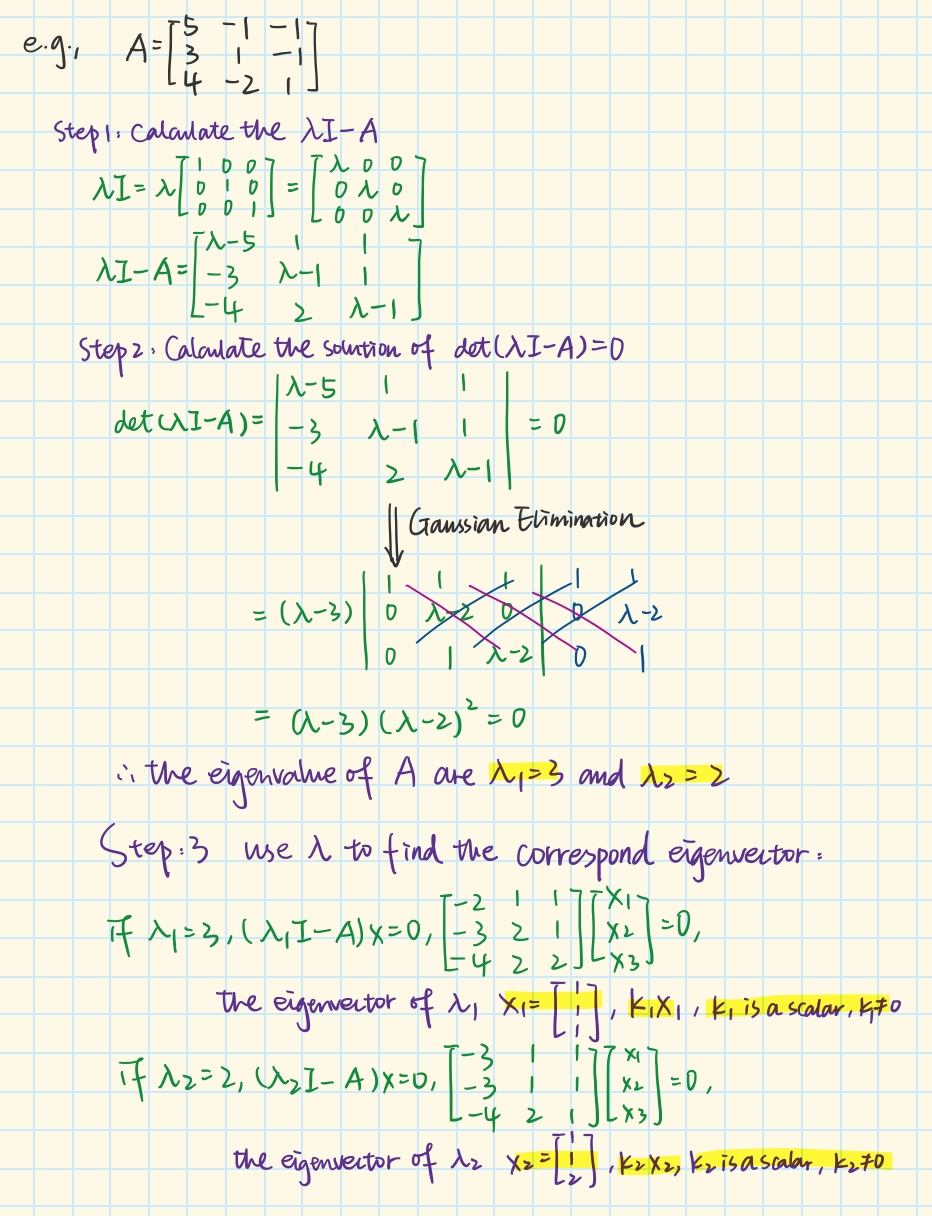 e.g., A=[5 -1 -1
3 1 -1
4 -2 1]
Step1: Calculate the λI-A
λI=λ[1 0 0
0 1 0
0 0 1]=[λ 0 0
0 λ 0
0 0 λ]
λI-A=[λ-5 1 1
-3 λ-1 1
-4 2 λ-1]
Step2: Calculate the solution of det(λI-A)=0
det(λI-A)=|λ-5 1 1
-3 λ-1 1
-4 2 λ-1|=0
⇓ Gaussian Elimination
=(λ-3)|1 1 1|1 1
0 λ-2 0|0 λ-2
0 1 λ-2|0 1
=(λ-3)(λ-2)²=0
∴ the eigenvalue of A are λ₁=3 and λ₂=2
Step:3 use λ to find the correspond eigenvector:
if λ₁=3, (λ₁I-A)x=0, [-2 1 1
-3 2 1
-4 2 2][x₁
x₂
x₃]=0,
the eigenvector of λ₁ x₁=[1
1
1], k₁x₁, k₁ is a scalar, k₁≠0
if λ₂=2, (λ₂I-A)x=0, [-3 1 1
-3 1 1
-4 2 1][x₁
x₂
x₃]=0,
the eigenvector of λ₂ x₂=[1
1
2], k₂x₂, k₂ is a scalar, k₂≠0